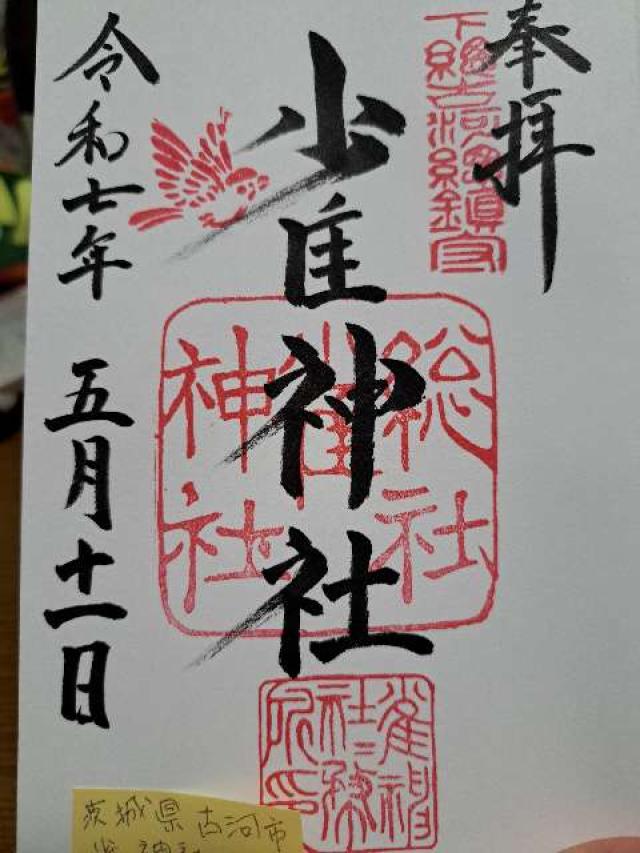 奉拝
下総古河総鎮守
雀神社
総社
雀
神社
令和七年
五月十一日
雀神
社務
所印
茨城県古河市
雀神社